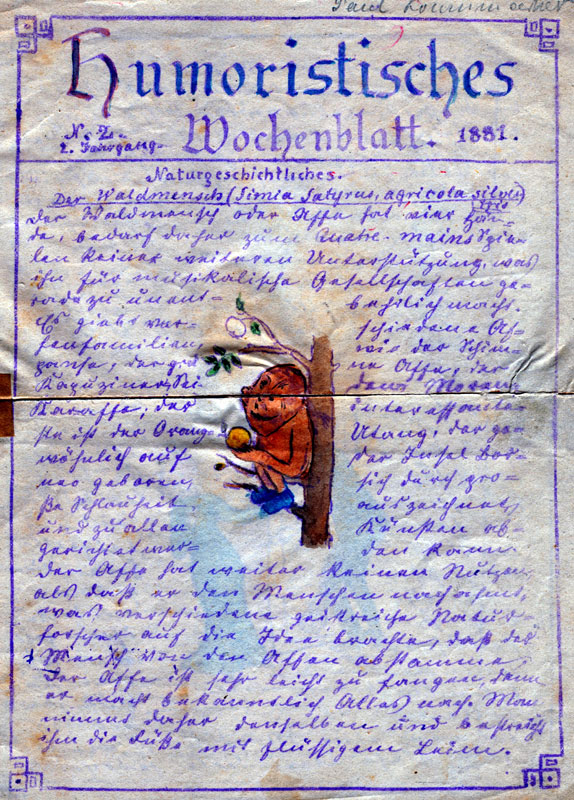 Humoristisches
N. 2.
2. Jahrgang.
Wochenblatt. 1881.
Naturgeschichtliches.
Der Waldmensch (Simia Satyrus, agricola silvis)
Der Waldmensch oder Affe hat vier Hän-
de, bedarf daher zum Quatre-mains Spie-
len keiner weiteren Unterstützung, was
ihn für musikalische Gesellschaften ge-
radezu unent- behrlich macht.
Es giebt ver- schiedene Af-
fenfamilien wie der Schim-
panse, der ne Affe, der
Kapuziner, dem Meran,
Karaffe, der interessante-
ste ist der Orang- Utang, der ge-
wöhnlich auf der Insel Bor-
neo geboren, sich durch gro-
ße Schlauheit auszeichnet,
und zu allen Künsten ab-
gerichtet wer- den kann.
Der Affe hat weiter keinen Nutzen,
als daß er den Menschen nachahmt,
was verschiedene geistreiche Natur-
forscher auf die Idee brachte, daß der
Mensch von den Affen abstamme.
Der Affe ist sehr leicht zu fangen, denn
er macht bekanntlich Alles nach. Man
nimmt daher denselben und bestreicht
ihm die Füße mit flüssigem Leim.